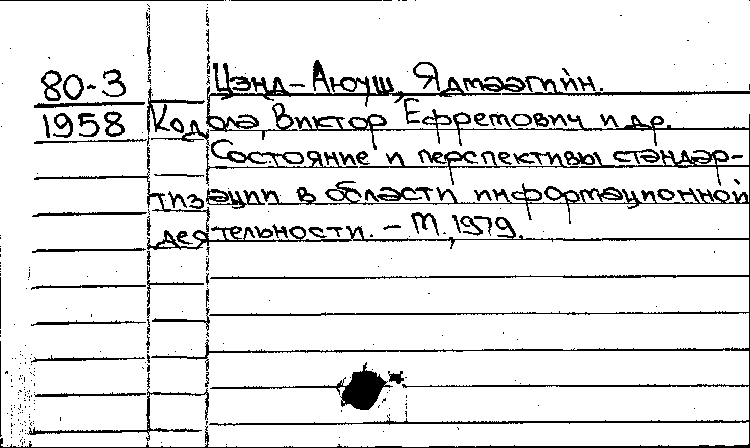 80-3 Цэнд-Аюуш, Ядмаагийн.
1958 Кодола, Виктор Ефремович и др.
Состояние и перспективы стандар-
тизации в области информационной
деятельности. - М., 1979.